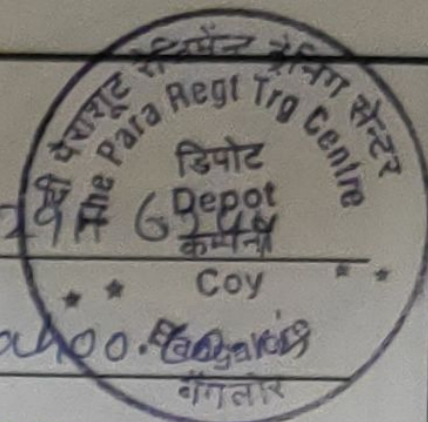 दी पैराशूट रेजिमेन्ट ट्रेनिंग सेन्टर
The Para Regt Trg Centre
डिपोट
Depot
कम्पनी
Coy
Bangalore
बैंगलोर